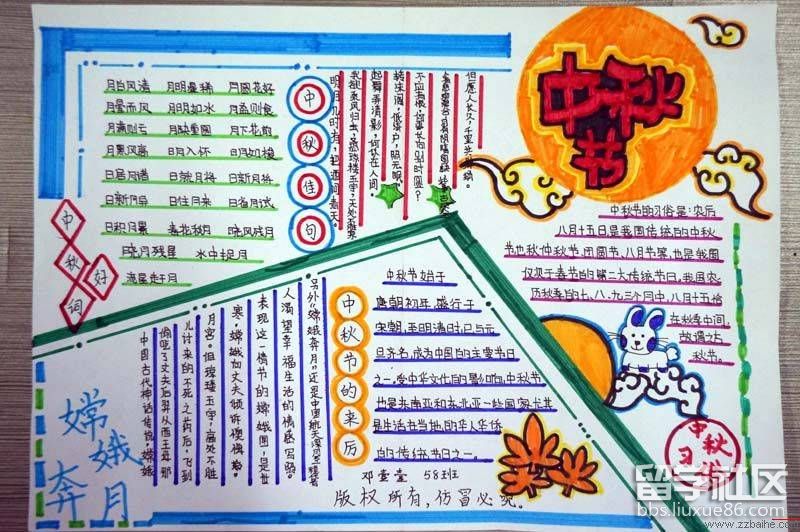 中秋节
中秋好词
月白风清 月明星稀 月圆花好
月晕而风 月明如水 月盈则食
月满则亏 月缺重圆 月下花前
月黑风高 明月入怀 日月如梭
日居月诸 日就月将 日新月将
日新月异 日往月来 日省月试
日积月累 春花秋月 晓风残月
晓月残星 水中捉月
流星赶月
中秋佳句
明月几时有，把酒问青天。
起舞弄清影，何似在人间。
转朱阁，低绮户，照无眠。
不应有恨，何事长向别时圆？
但愿人长久，千里共婵娟。
中秋节的习俗是：农历
八月十五日是我国传统的中秋
节也称仲秋节、团圆节、八月节等，也是我国
仅次于春节的第二大传统节日，我国农
历秋季的七、八、九三个月中，八月十五恰
在秋季中间
故谓之
秋节。
中秋习俗
中秋节的来历
中秋节始于
唐朝初年，盛行于
宋朝，至明清时已与元
旦齐名，成为中国的主要节日
之一。受中华文化的影响，中秋节
也是东南亚和东北亚一些国家尤其
是生活在当地的华人华侨
的传统节日之一。
嫦娥奔月
中国古代神话传说，嫦娥
偷吃了丈夫后羿从西王母那
儿讨来的不死之药后，飞到
月宫。但琼楼玉宇，高处不胜
寒，嫦娥向丈夫倾诉懊悔。
表现这一情节的嫦娥图，是世
人渴望幸福生活的情感写照。
邓莹莹 58班
版权所有，仿冒必究。
留学社区
bbs.liuxue86.com
www.zzbaihe.com